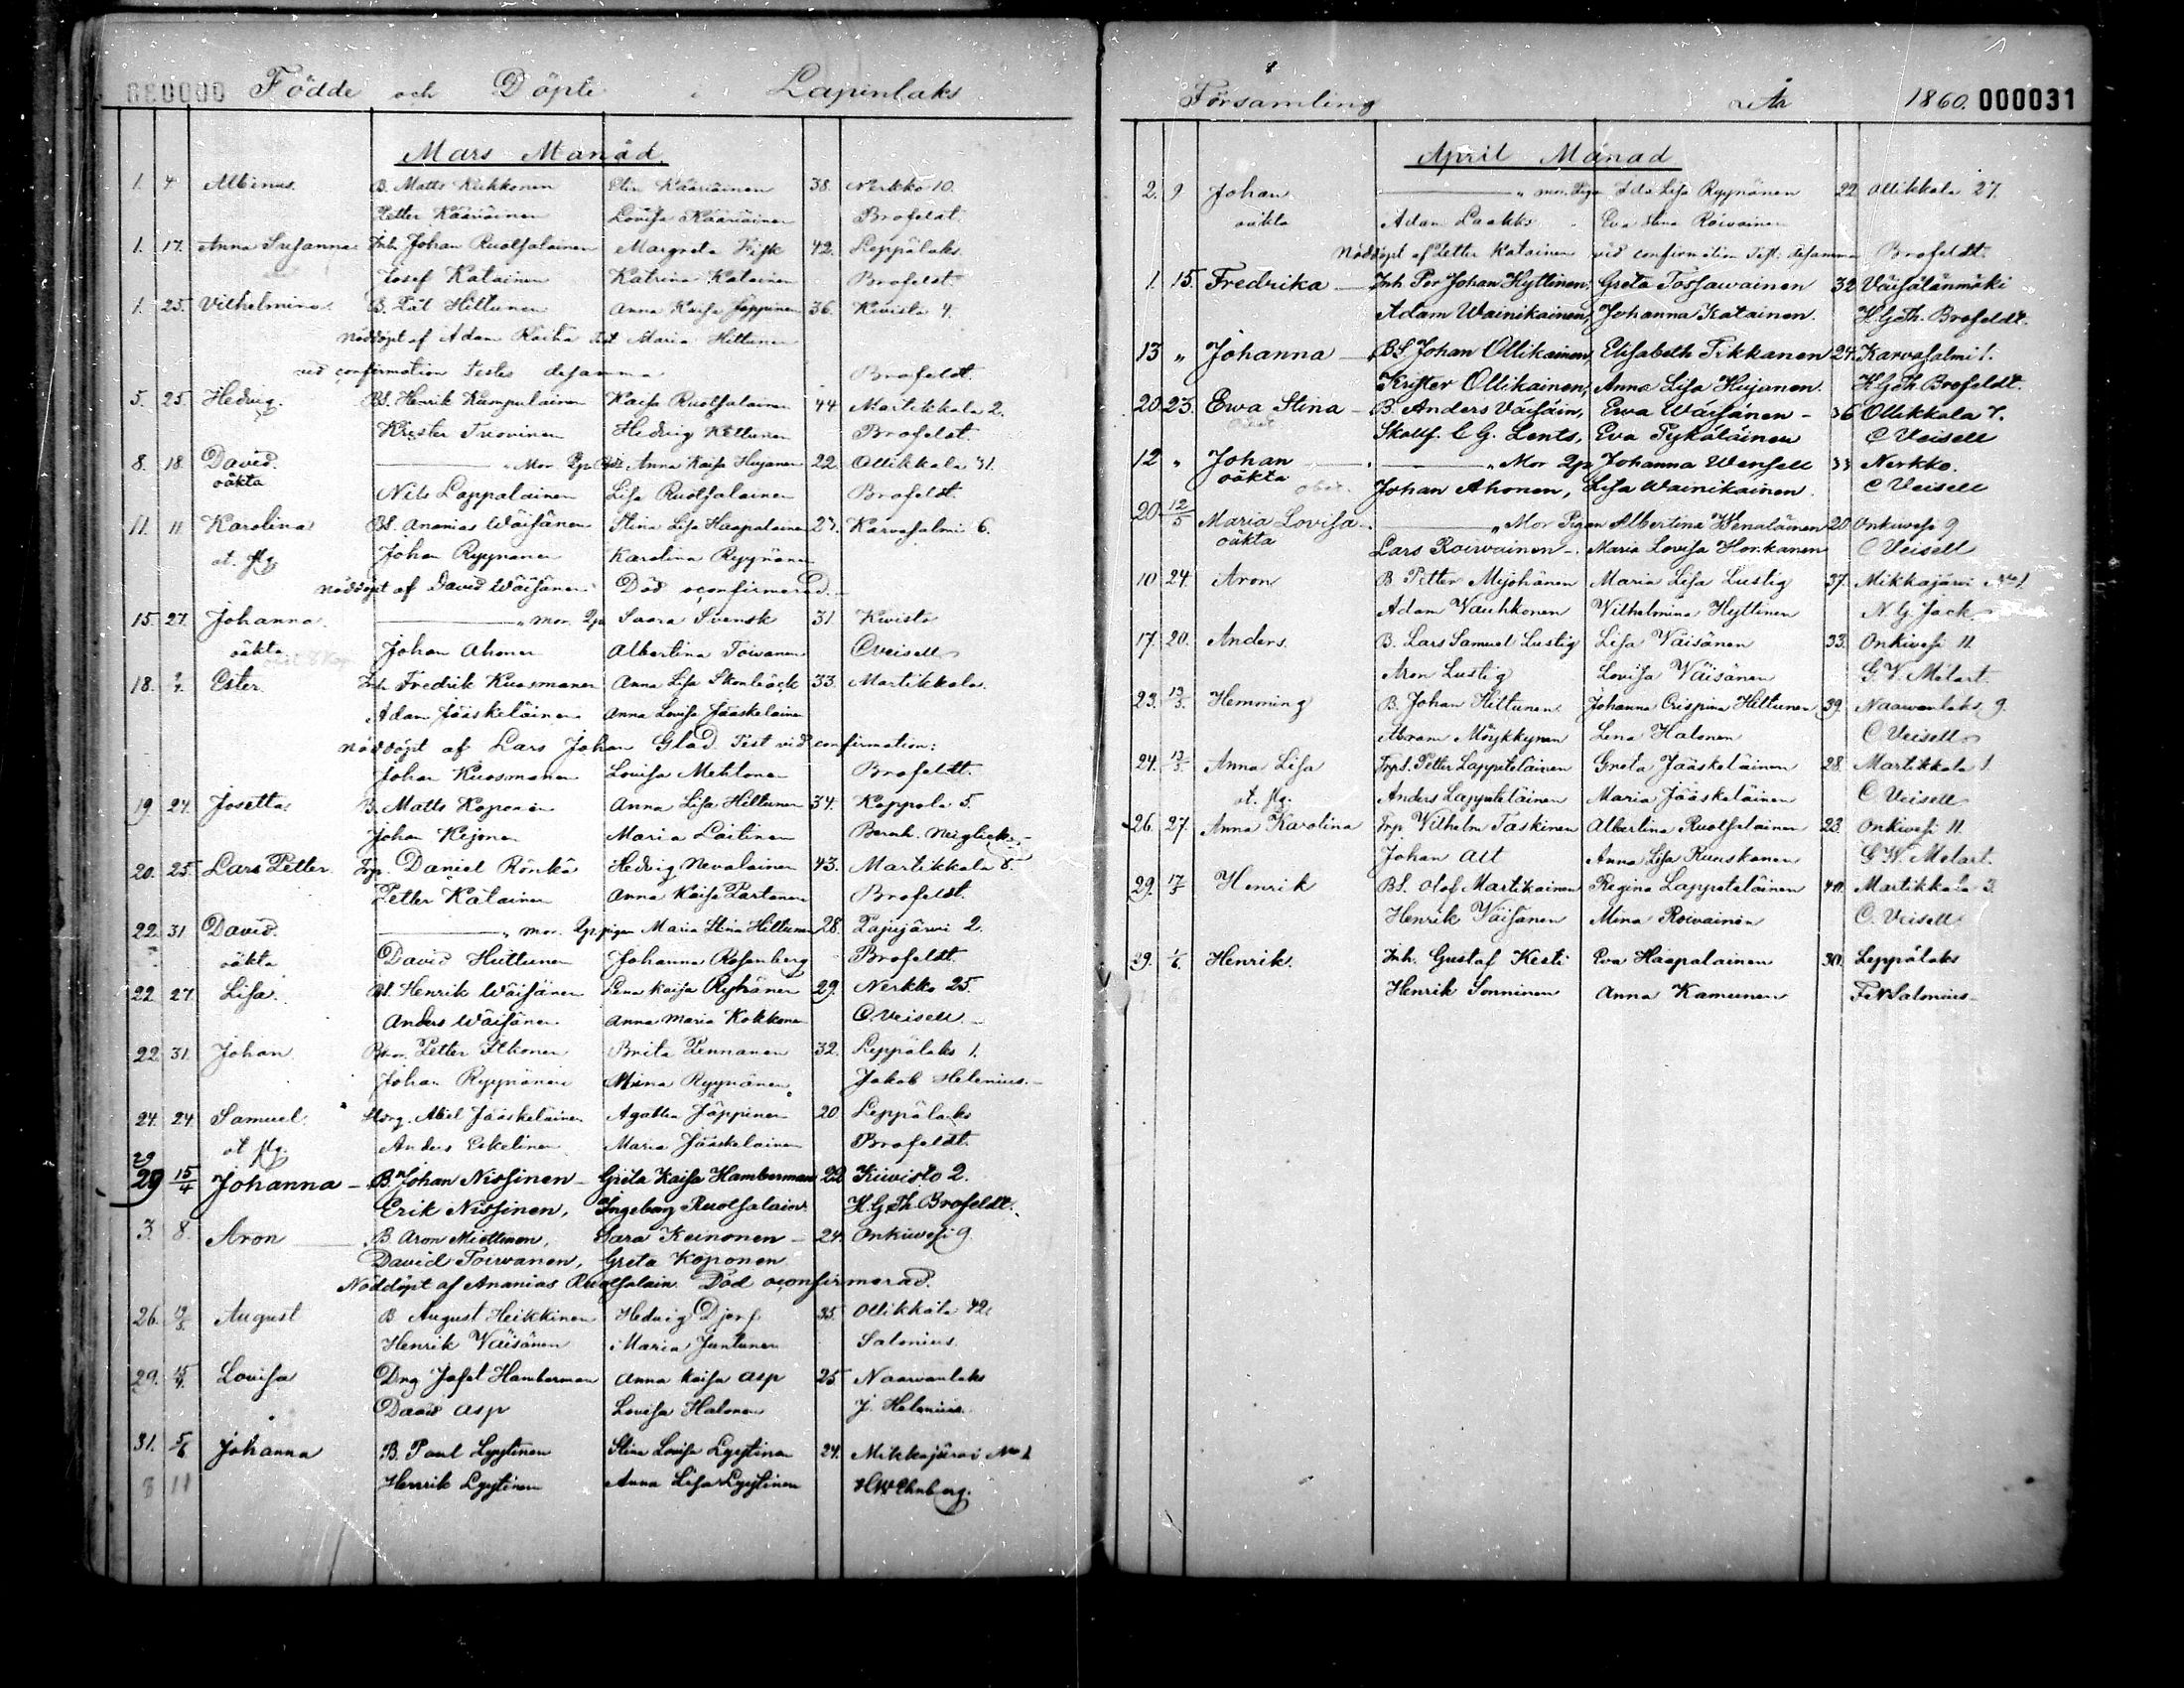 000030 Födde och Döpte i Lapinlaks
Mars Månad.
1. 4 Albinus. B. Matts Kuhkonen Elin Kääriäinen 38. Nerkko 10.
Petter Kääriäinen Lovisa Kääriäinen Brofeldt.
1. 17. Anna Susanna Inh. Johan Ruotsalainen Margreta Kisk 42. Leppälaks.
Josef Katainen Katrina Katainen Brofeldt.
1. 25. Vilhelmina B. Pål Hiltunen Anna Kaisa Jäppinen 36. Kivisto 4.
Nöddöpt af Adam Räihä Test Maria Hiltunen
vid confirmation Testes desamma Brofeldt.
5. 25. Hedvig. BS. Henrik Kumpulainen Kaisa Ruotsalainen 44. Martikkala 2.
Krister Tuovinen Hedvig Kettunen Brofeldt.
8. 18. David. Mor Anna Kaisa Hujanen 22. Ollikkala 31.
oäkta Nils Lappalainen Lisa Ruotsalainen Brofeldt.
11. 11 Karolina BS. Ananias Wäisänen Stina Lisa Haapalainen 27. Karvasalmi 6.
ot. flg. Johan Ryynänen Karolina Ryynänen
nöddöpt af David Wäisänen Död oconfirmerad.
15. 27. Johanna. mor. Saara Svensk 31. Kivisto
oäkta Johan Ahonen Albertina Toivanen C Veisell
18. Ester. Inh Fredrik Kuosmanen Anna Lisa Skonbäck 33. Martikkala.
Adam Jääskeläinen Anna Lovisa Jääskelainen
nöddöpt af Lars Johan Glad. Test vid confirmation:
Johan Kuosmanen Lovisa Mehtonen Brofeldt.
19. 24. Josetta B. Matts Koponen Anna Lisa Hiltunen 34. Koppola 5.
Johan Keijonen Maria Laitinen Bernh. Neiglick.
20. 25. Lars Petter. Trp. Daniel Rönkä Hedvig Nevalainen 43. Martikkala 8.
Petter Katainen Anna Kaisa Partanen Brofeldt.
22. 31 David. mor. pigan Maria Stina Hiltunen 28. Pajujärvi 2.
oäkta David Huttunen Johanna Rosenberg Brofeldt.
22. 27 Lisa. BS. Henrik Wäisänen Lena Kaisa Ryhänen 29. Nerkko 25.
Anders Wäisänen Anna Maria Kokkonen C. Veisell.
22. 31. Johan Petter Itkonen Brita Pennanen 32. Leppälaks 1.
Johan Ryynänen Mina Ryynänen Jakob Helenius.
24. 24 Samuel. Abel Jääskeläinen Agatha Jäppinen 20. Leppälaks
ot flg. Anders Eskelinen Maria Jääskelainen Brofeldt.
29
29 15/4 Johanna B. Johan Nissinen Greta Kaisa Hamberman 22 Kiwisto 2.
Erik Nissinen, Ingeborg Ruotsalain. H. G. Th. Brofeldt.
3. 8. Aron B. Aron Miettinen, Sara Keinonen 24. Onkiwesi 9
David Toiwanen, Greta Koponen
Nöddöpt af Ananias Ruotsalain. Död oconfirmerad.
26. August B August Heikkinen Hedvig Djerf 35. Ollikkala 42
Henrik Väisänen Maria Juntunen Salonius.
29. Lovisa Dng Josef Hamberman Anna Kaisa Asp 25 Naarvanlaks
David Asp Lovisa Halonen J. Helenius.
31. 5/6 Johanna B. Paul Lyytinen Stina Lovisa Lyytinen 24. Mikkajärvi No 1
Henrik Lyytinen Anna Lisa Lyytinen H W Ehnberg.
8 11
Församling År 1860. 000031
April Månad
2. 9 Johan mor. Piga Ida Lisa Ryynänen 22 Ollikkala 27.
oäkta Adam Laakko Eva Stina Roivainen
Nöddöpt af Petter Katainen vid confirmation Test. desamma Brofeldt.
1. 15. Fredrika Inh. Per Johan Hyttinen, Greta Tossawainen 32 Väisälänmäki
Adam Wainikainen, Johanna Katainen. H. G. Th. Brofeldt.
13 " Johanna BS. Johan Ollikainen, Elisabeth Tikkanen 24. Karvasalmi 1.
Krister Ollikainen, Anna Lisa Hujanen. H G Th Brofeldt.
20. 23. Ewa Stina B. Anders Väisäin, Ewa Wäisänen 36 Ollikkala 7.
Skollf. C G. Lents, Eva Pykäläinen C Veisell
12 " Johan Mor Johanna Wensell 33 Nerkko.
oäkta Johan Ahonen, Lisa Wainikainen. C Veisell
20 12/5 Maria Lovisa Mor Pigan Albertina Wenäläinen 20 Onkiwesi 9
oäkta Lars Roiwainen Maria Lovisa Honkanen C Veisell
10 24. Aron B Petter Myöhänen Maria Lisa Lustig 37. Mikkajärvi No 1.
Adam Vauhkonen Wilhelmina Hyttinen N. G. Jack
17. 20. Anders. B. Lars Samuel Lustig Lisa Väisänen 33. Onkivesi 11.
Aron Lustig Lovisa Wäisänen G. V. Molart.
23. 13/5. Hemming B. Johan Hiltunen Johanna Crispina Hiltunen 39. Naarvanlaks 9.
Abram Möykkynen Lena Halonen C. Veisell
24. 13/5. Anna Lisa Petter Lappeteläinen Greta Jääskeläinen 28. Martikkala 1.
ot. flg. Anders Lappeteläinen Maria Jääskeläinen C. Veisell
26. 27. Anna Karolina Trp Vilhelm Taskinen Albertina Ruotsalainen 23. Onkivesi 11.
Johan Alt Anna Lisa Ruuskanen G. W. Molart.
29. 17/5 Henrik BS. Olof Martikainen Regina Lappeteläinen 40. Martikkala 3.
Henrik Väisänen Mina Roivainen C. Veisell
29. 1/6. Henrik. Inh. Gustaf Kesti Eva Haapalainen 30. Leppälaks
Henrik Sonninen Anna Kamunen Salonius